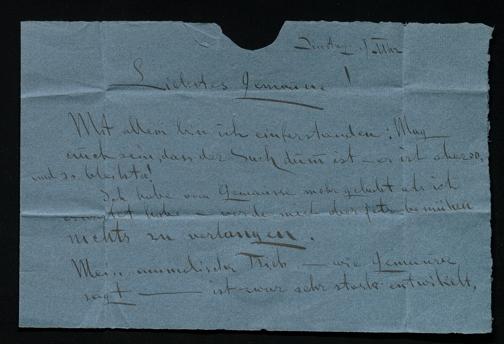 Dienstag, 9 Uhr
Liebstes Gemause!
Mit allem bin ich einferstanden: Mag
auch sein, dass der Sach dum ist – er ist aber so,
und so bleibts!
Ich habe vom Gemause mehr gehabt als ich
habe – werde mich aber jetz bemühen
nichts zu verlangen.
Mein animalischer Trieb – wie Gemause
sagt – ist zwar sehr stark entwikelt,